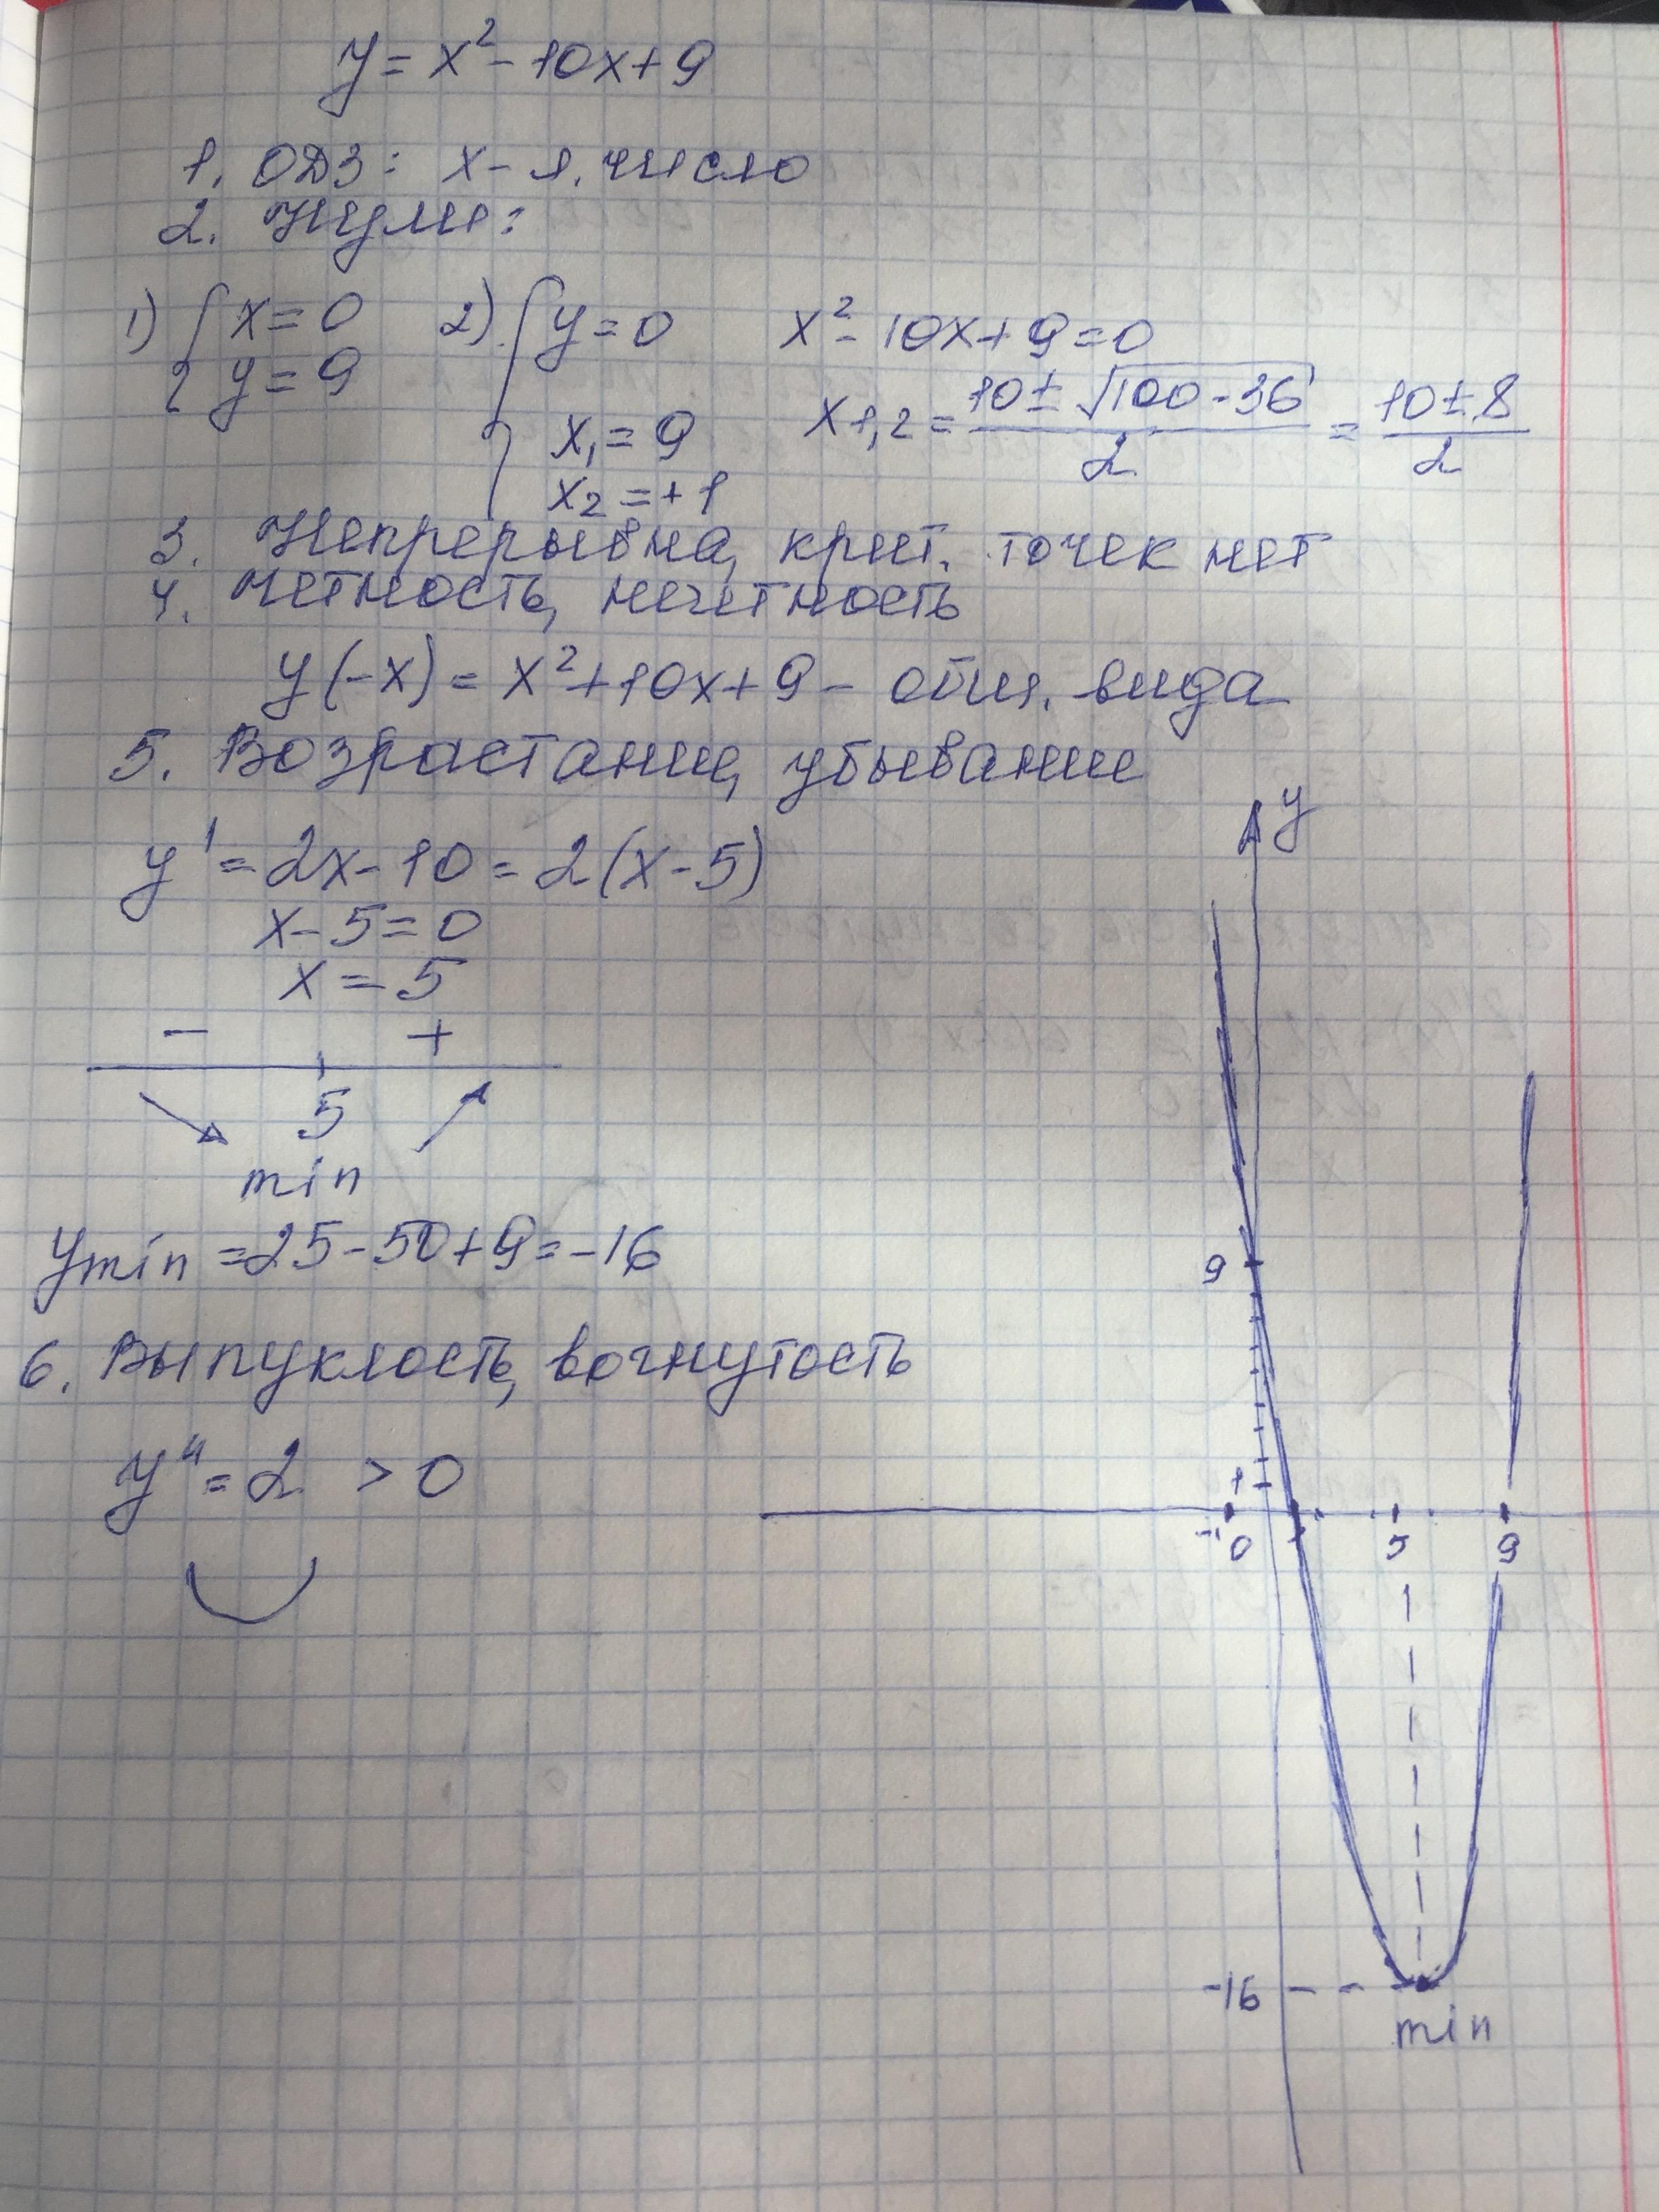 y = x² - 10x + 9
1. ОДЗ: x - л. число
2. Нули:
1) { x = 0 y = 9 2) { y = 0 x₁ = 9 x₂ = +1
x² - 10x + 9 = 0
x₁,₂ = (10 ± √(100 - 36)) / 2 = (10 ± 8) / 2
3. Непрерывна, крит. точек нет
4. Четность, нечетность
y(-x) = x² + 10x + 9 - общ. вида
5. Возрастание, убывание
y' = 2x - 10 = 2(x - 5)
x - 5 = 0
x = 5
- +
5
min
y min = 25 - 50 + 9 = -16
6. Выпуклость, вогнутость
y'' = 2 > 0
y
9
1
-1 0 1 5 9
-16
min